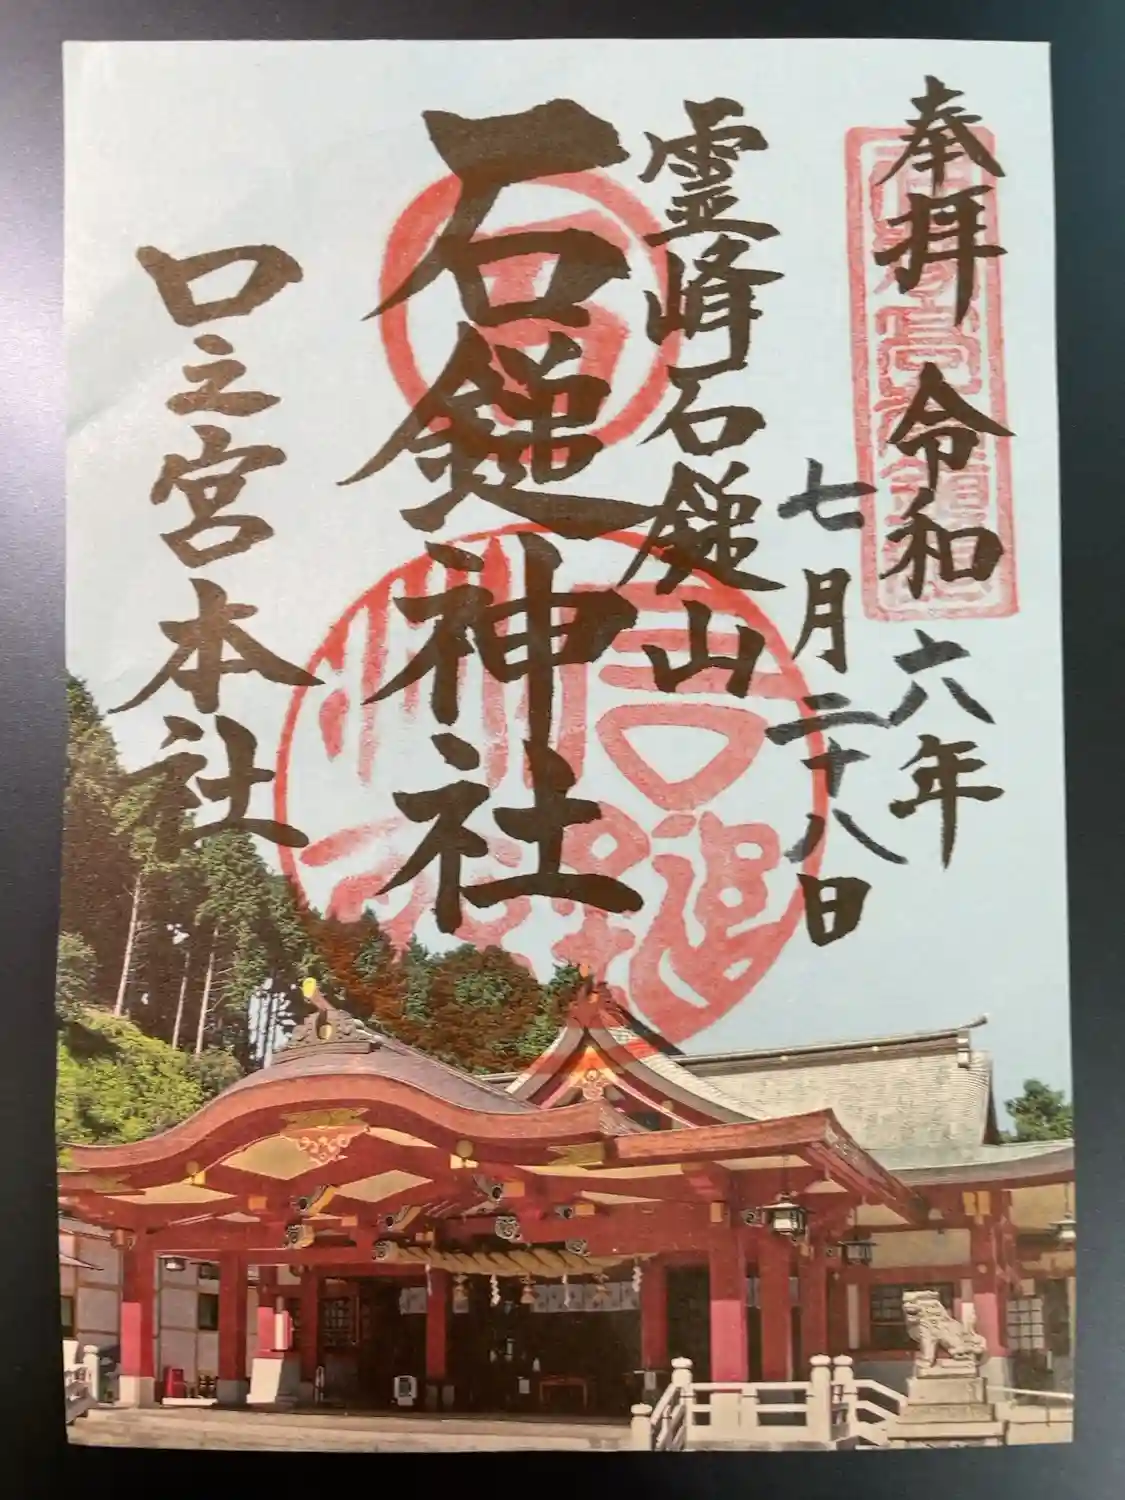 奉拝 令和六年
七月二十八日
霊峰石鎚山
石鎚神社
口之宮本社